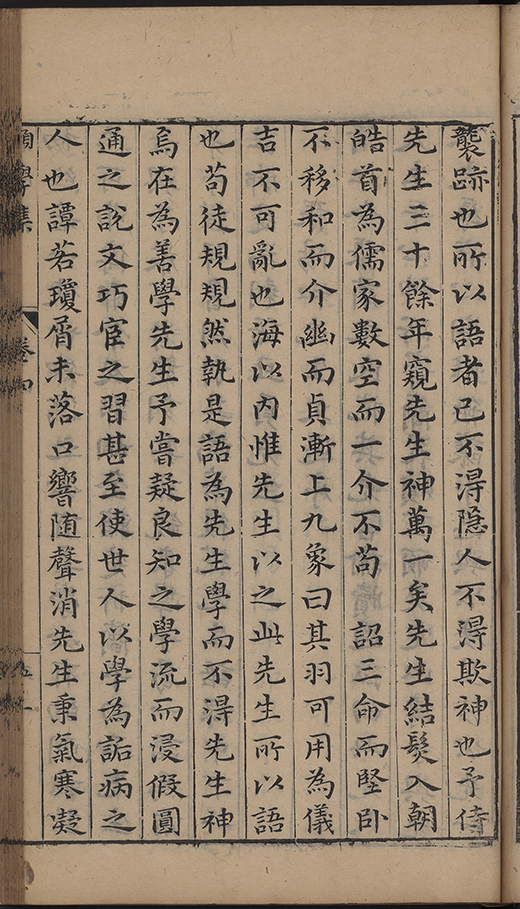 襲跡也所以語者已不得隱人不得欺神也予侍
先生三十餘年窺先生神萬一矣先生結髮入朝
皓首為儒家數空而一介不苟 詔三命而堅卧
不移和而介幽而貞漸上九象曰其羽可用為儀
吉不可亂也海以内惟先生以之此先生所以語
也苟徒規規然執是語為先生學而不得先生神
烏在為善學先生予嘗疑良知之學流而浸假圓
通之說文巧宦之習甚至使世人以學為詬病之
人也譚若瓊屑未落口響随聲消先生秉氣寒凝
學集 卷四